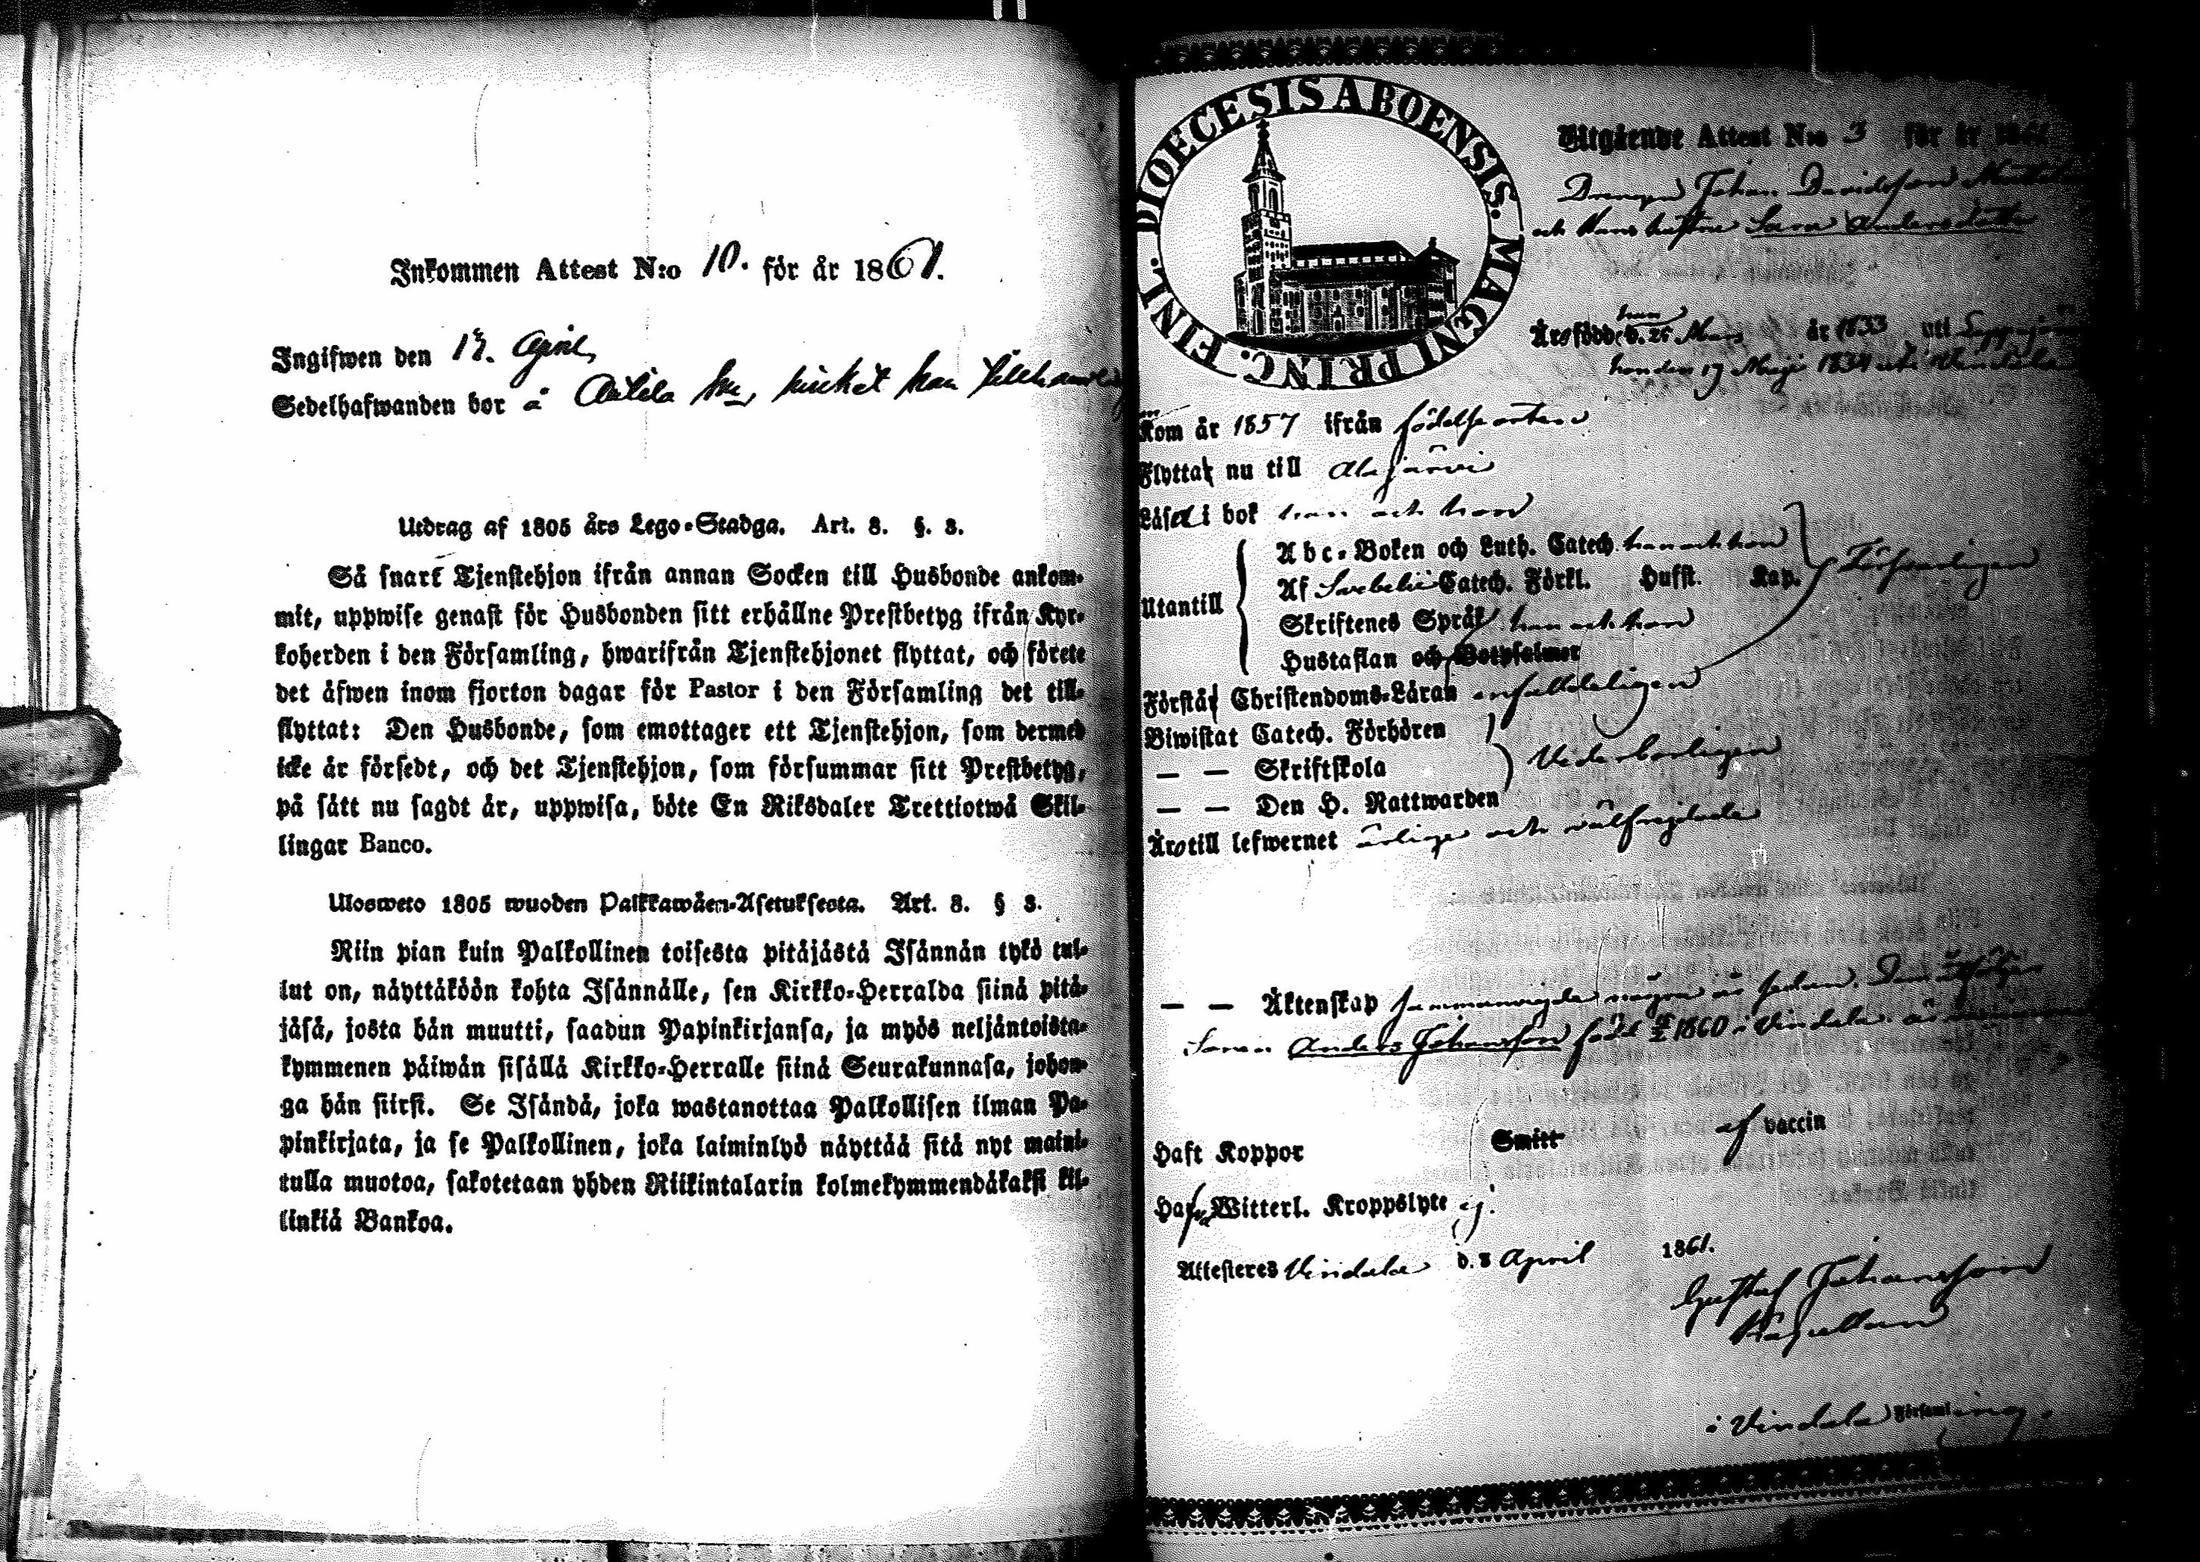 Inkommen Attest N:o 10. för år 1861.
Ingifwen den 17. April,
Sedelhafwanden bor å
Utdrag af 1805 års Lego-Stadga. Art. 3. §. 3.
Så snart Tjenstehjon ifrån annan Socken till Husbonde ankom-
mit, uppwise genast för Husbonden sitt erhållne Prestbetyg ifrån Kyr-
koherden i den Församling, hwarifrån Tjenstehjonet flyttat, och förete
det äfwen inom fjorton dagar för Pastor i den Församling det till-
flyttat: Den Husbonde, som emottager ett Tjenstehjon, som dermed
icke är försedt, och det Tjenstehjon, som försummar sitt Prestbetyg,
på sätt nu sagdt är, uppwisa, böte En Riksdaler Trettiotwå Skil-
lingar Banco.
Ulosweto 1805 wuoden Palkkawäen-Asetuksesta. Art. 3. § 3.
Niin pian kuin Palkollinen toisesta pitäjästä Isännän tykö tul-
lut on, näyttäköön kohta Isännälle, sen Kirkko-Herralda siinä pitä-
jäsä, josta hän muutti, saadun Papinkirjansa, ja myös neljäntoista-
kymmenen päiwän sisällä Kirkko-Herralle siinä Seurakunnasa, johon-
ga hän siirsi. Se Isändä, joka wastanottaa Palkollisen ilman Pa-
pinkirjata, ja se Palkollinen, joka laiminlyö näyttää sitä nyt maini-
tulla muotoa, sakotetaan yhden Riikintalarin kolmekymmendäkaksi kil-
linkiä Bankoa.
DIOECESIS ABOENSIS. MAGNI PRINC. FINL.
Utgående Attest N:o 3 för år 1861
Drengen Johan Davidsson
och hans hustru Sara Andersdotter
han
Äro födde d. 25 Mars år 1833 uti
hon den 17 Maji 1834 uti Vindala
Kom år 1857 ifrån födelseorten
Flyttar nu till Alajärvi
Läser i bok han och hon
Utantill
Abc-Boken och Luth. Catech. han och hon
Af Svebelii Catech. Förkl. Hufst. Kap. Försvarligen
Skriftenes Språk han och hon
Hustaflan och Botpsalmer
Förstår Christendoms-Läran enfaldeligen
Biwistat Catech. Förhören
— — Skriftskola Vederbörligen
— — Den H. Nattwarden
Äro till lefwernet ärlige och välfrejdade
— — Äktenskap sammanvigde några år sedan. Dem åtföljer
Sonen Anders Johansson född 1860 i Vindala
Haft Koppor Smitt- af vaccin
Hafva Witterl. Kroppslyte ej.
Attesteres Vindala d. 8 April 1861.
Gustaf Johansson
Kapellan
i Vindala Församling.